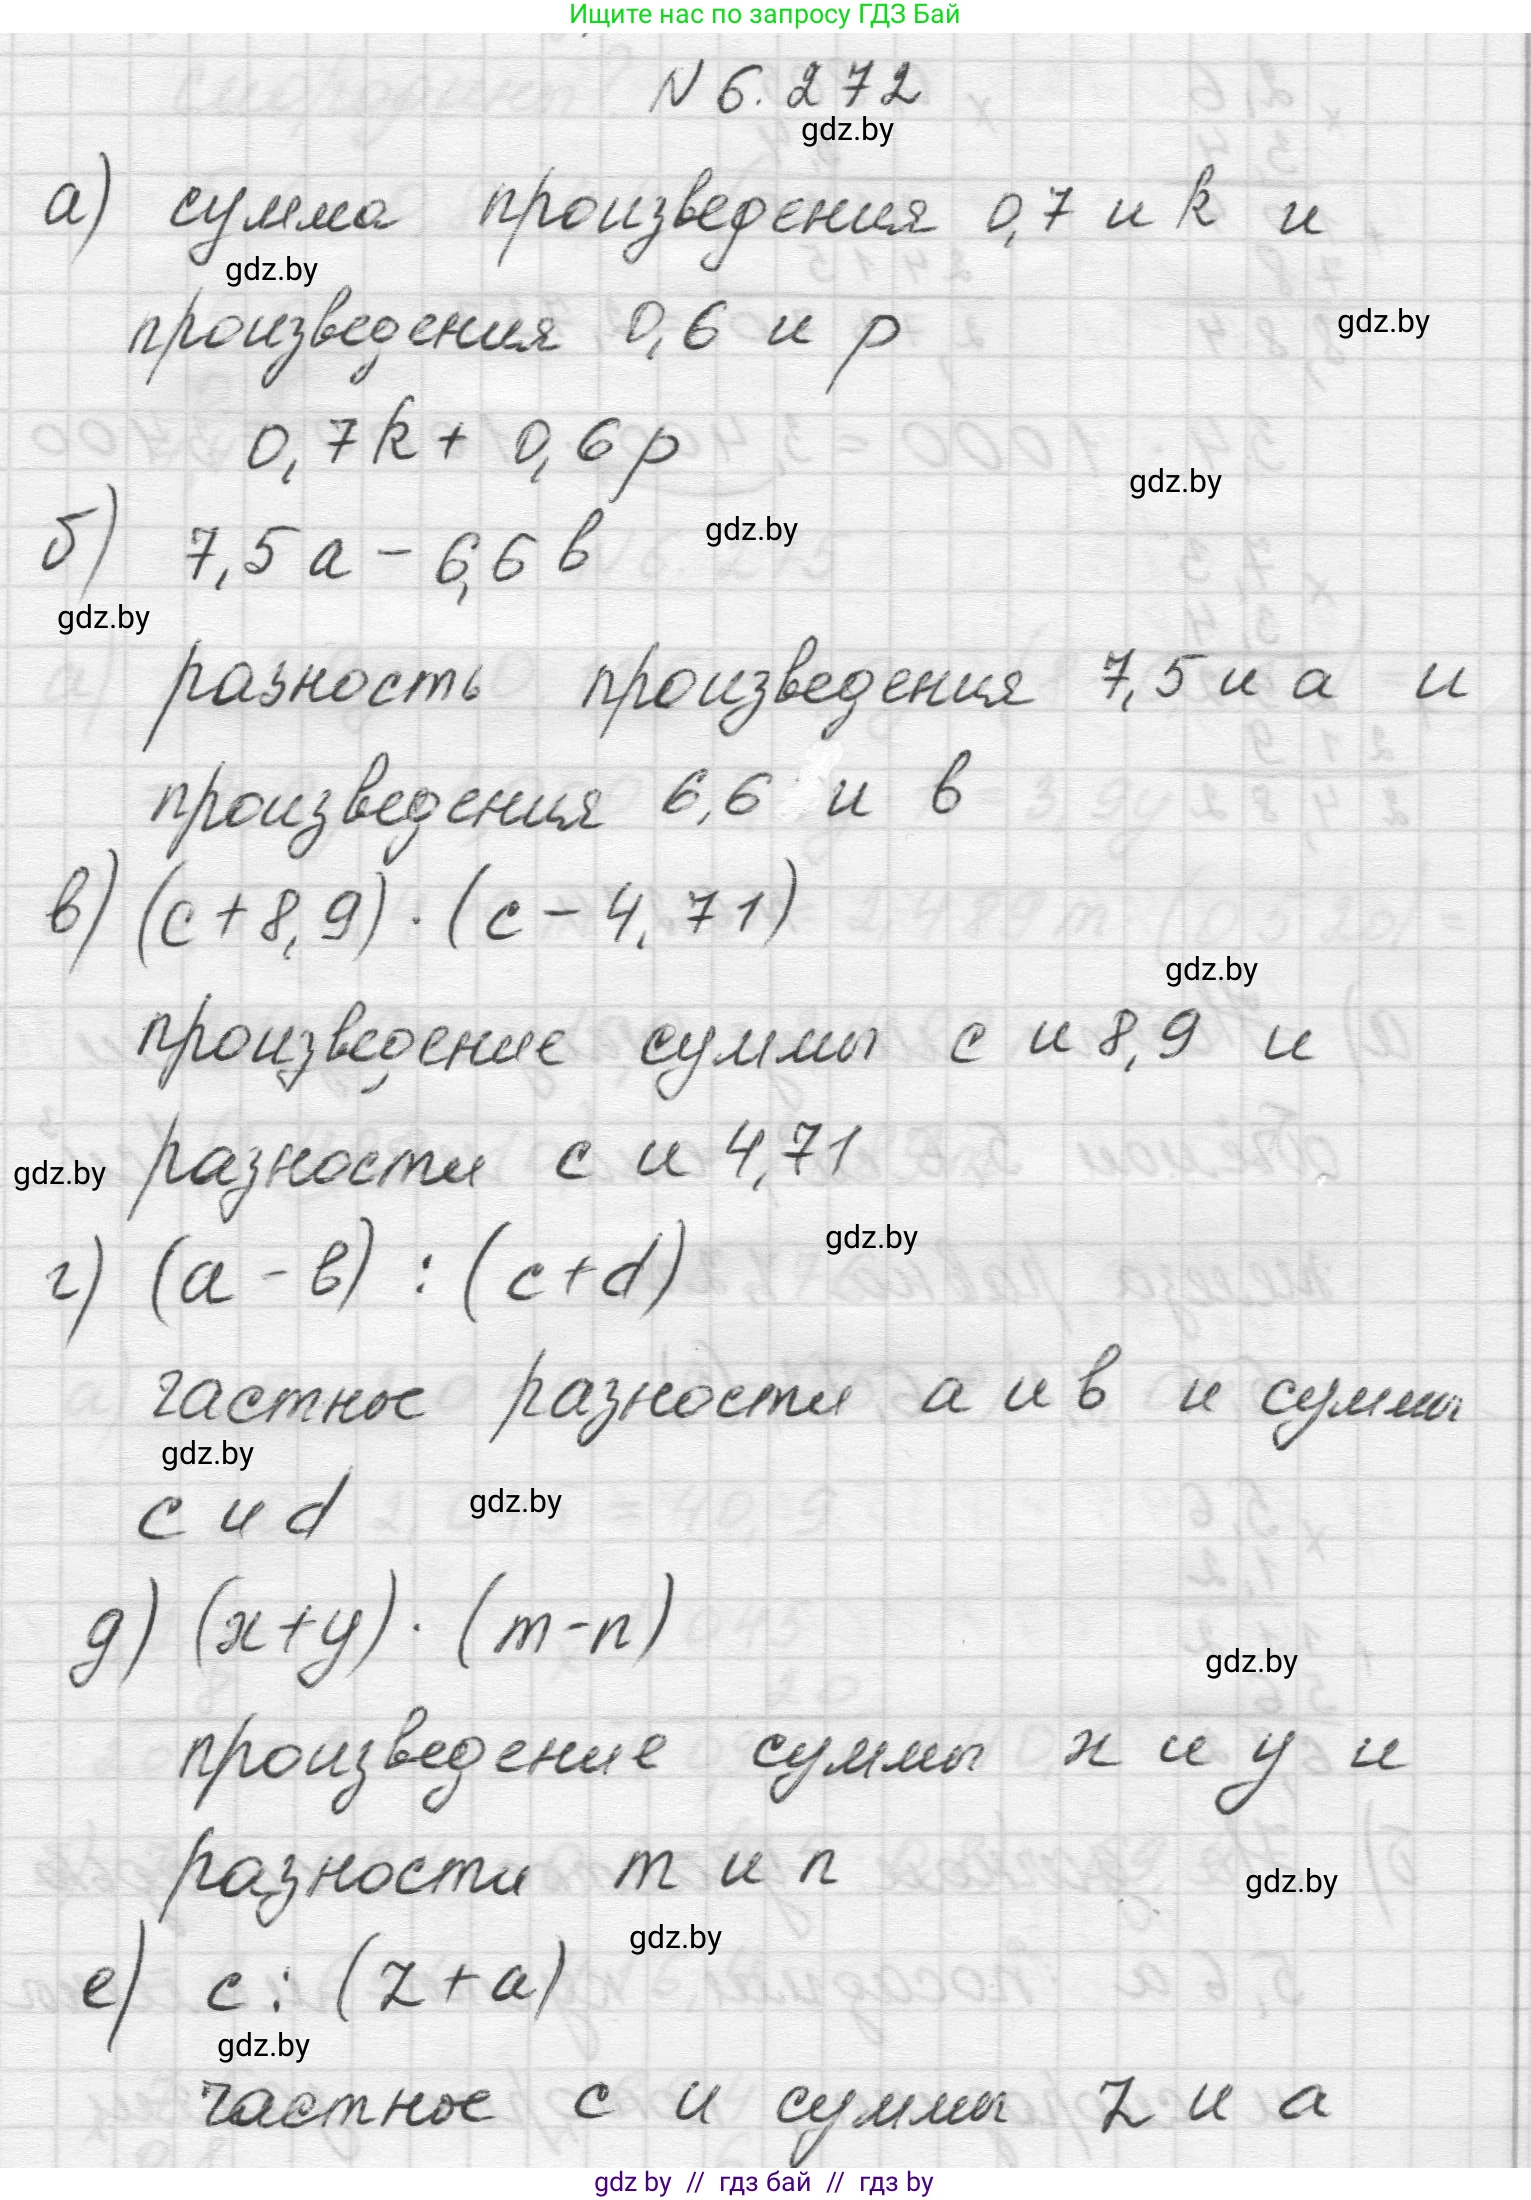 Ищите нас по запросу ГДЗ Бай
N 6.272
gdz.by
а) сумма произведения 0,7 и k и
gdz.by
произведения 0,6 и p
gdz.by
0,7k + 0,6p
gdz.by
б) 7,5a - 6,6b
gdz.by
gdz.by
разность произведения 7,5 и a и
произведения 6,6 и b
в) (c + 8,9) · (c - 4,71)
gdz.by
произведение суммы c и 8,9 и
разности c и 4,71
gdz.by
gdz.by
г) (a - b) : (c + d)
частное разности a и b и суммы
gdz.by
c и d
gdz.by
д) (x + y) · (m - n)
gdz.by
произведение суммы x и y и
разности m и n
gdz.by
gdz.by
е) c : (z + a)
gdz.by
частное c и суммы z и a
gdz by // гдз бай // гдз by